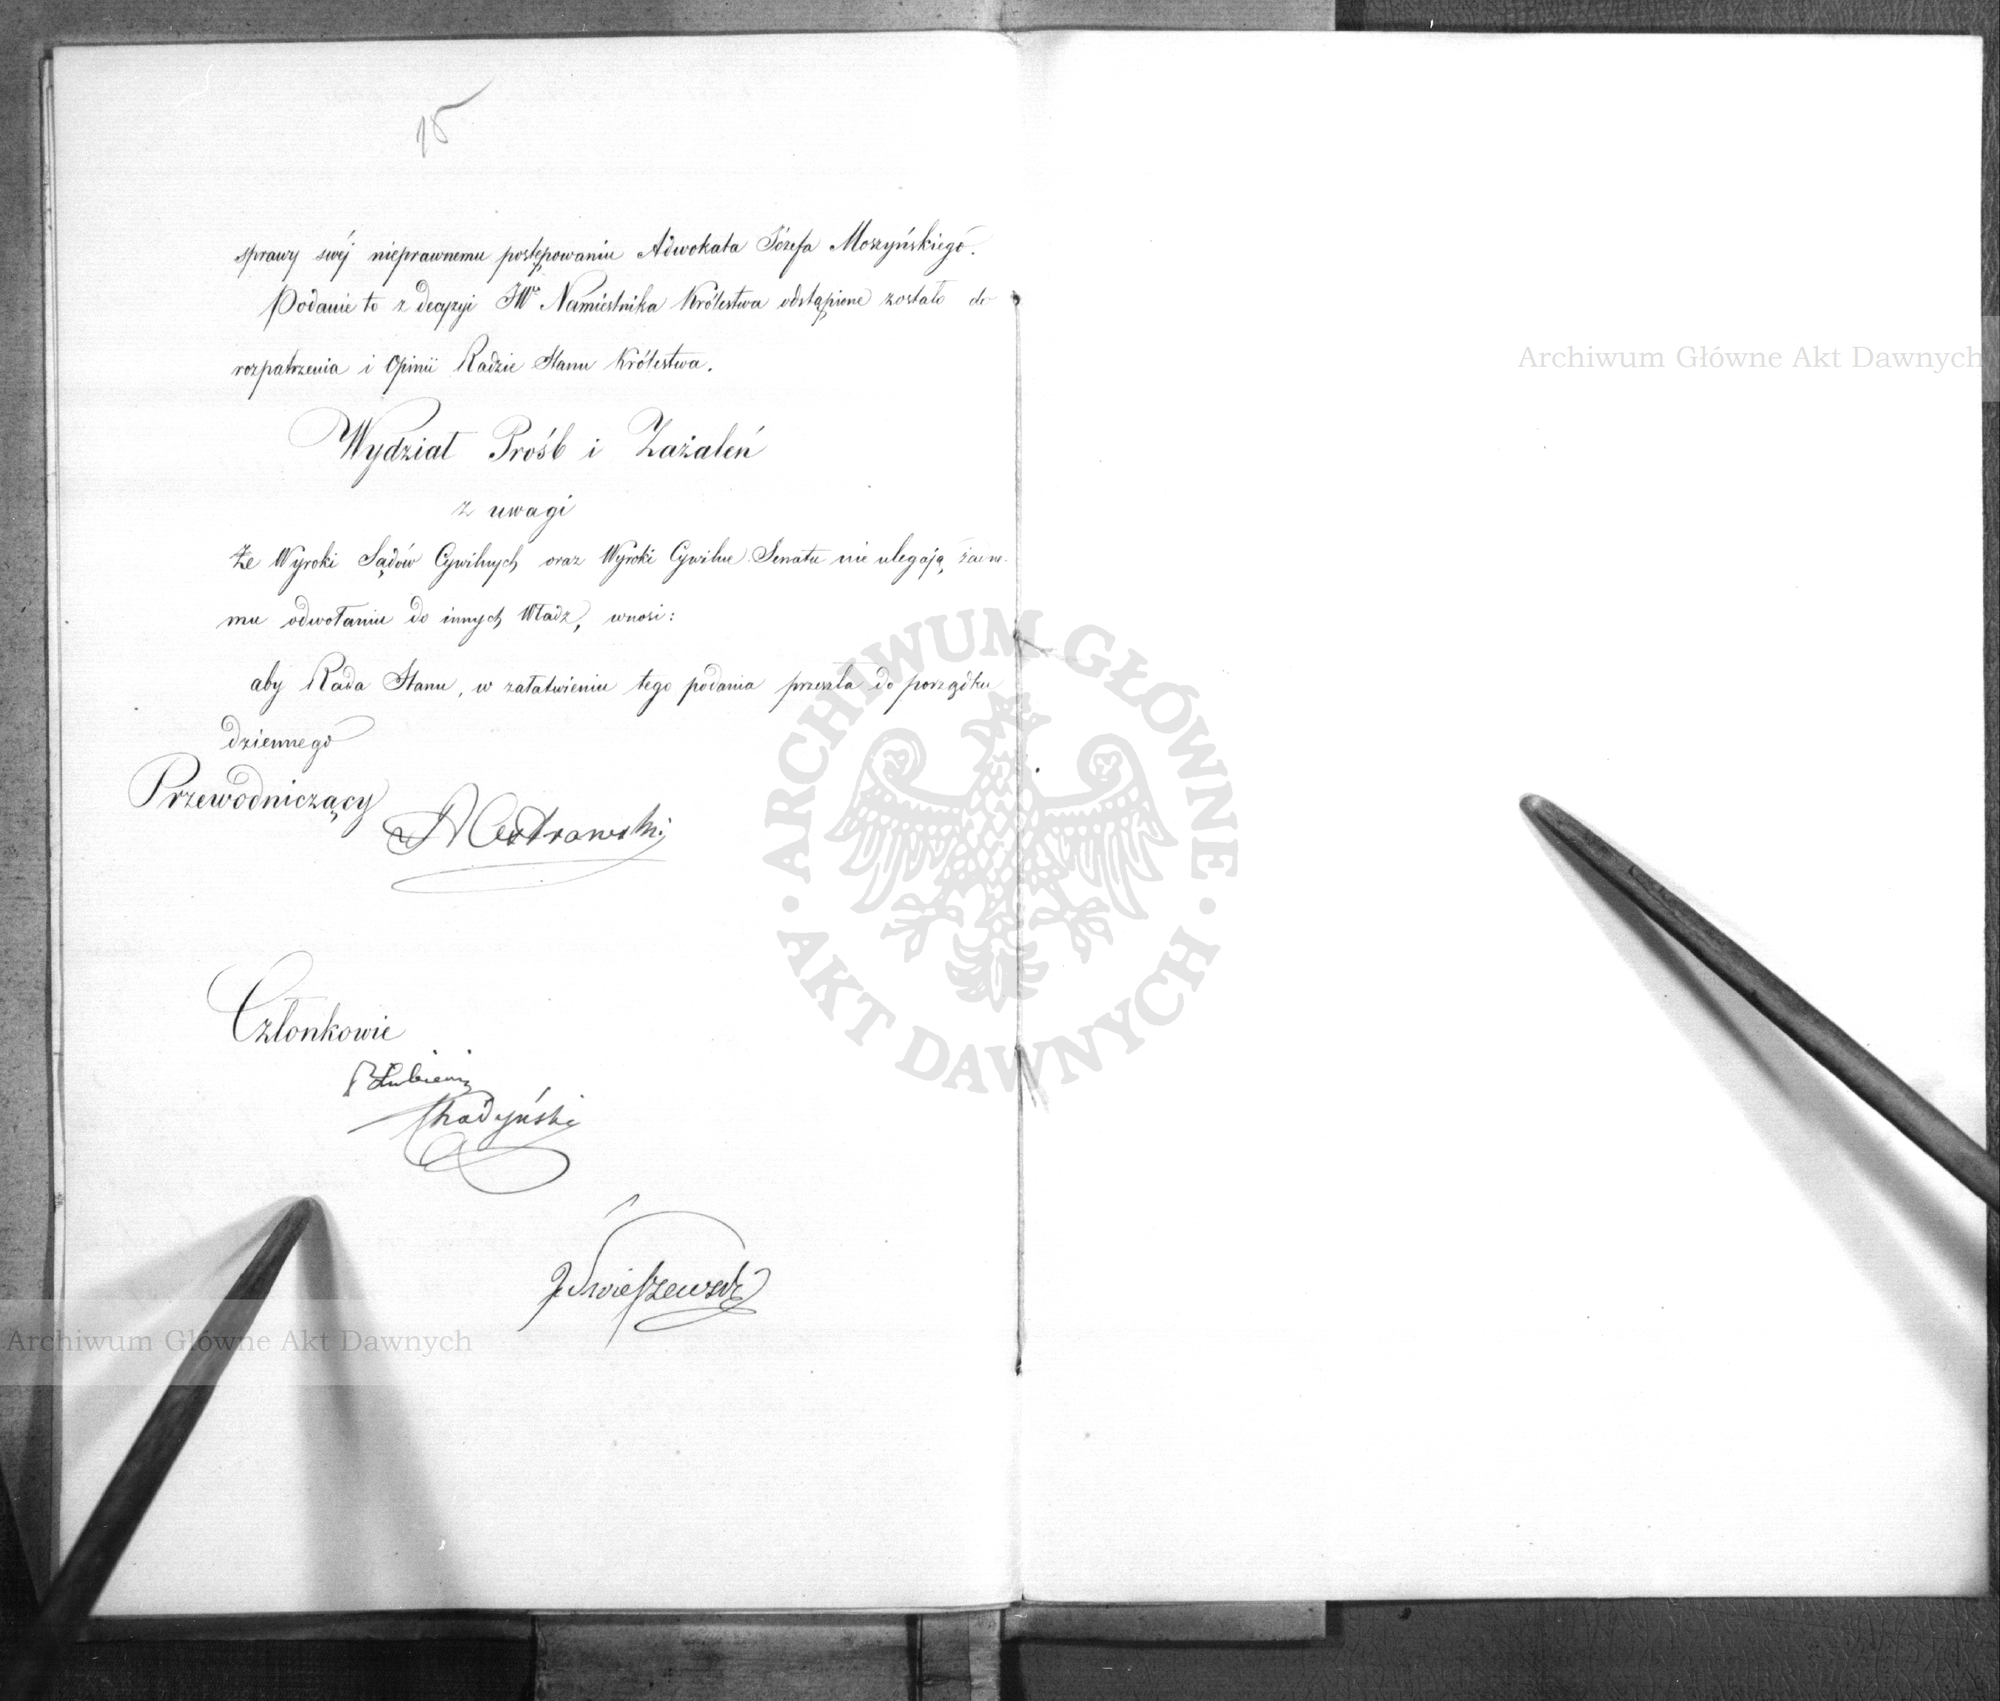 15
sprawy swéj nieprawnemu postępowaniu Adwokata Józefa Moszyńskiego.
Podanie to z decyzyi JWo Namiestnika Królestwa odstąpione zostało do
rozpatrzenia i Opinii Radzie Stanu Królestwa.
Wydział Próśb i Zażaleń
z uwagi
że Wyroki Sądów Cywilnych oraz Wyroki Cywilne Senatu nie ulegają żadne-
mu odwołaniu do innych Władz, wnosi:
aby Rada Stanu, w załatwieniu tego podania przeszła do porządku
dziennego
Przewodniczący
Ostrowski
Członkowie
Łubieński
J. Świeszewski
Archiwum Główne Akt Dawnych
Archiwum Główne Akt Dawnych
ARCHIWUM GŁÓWNE
AKT DAWNYCH